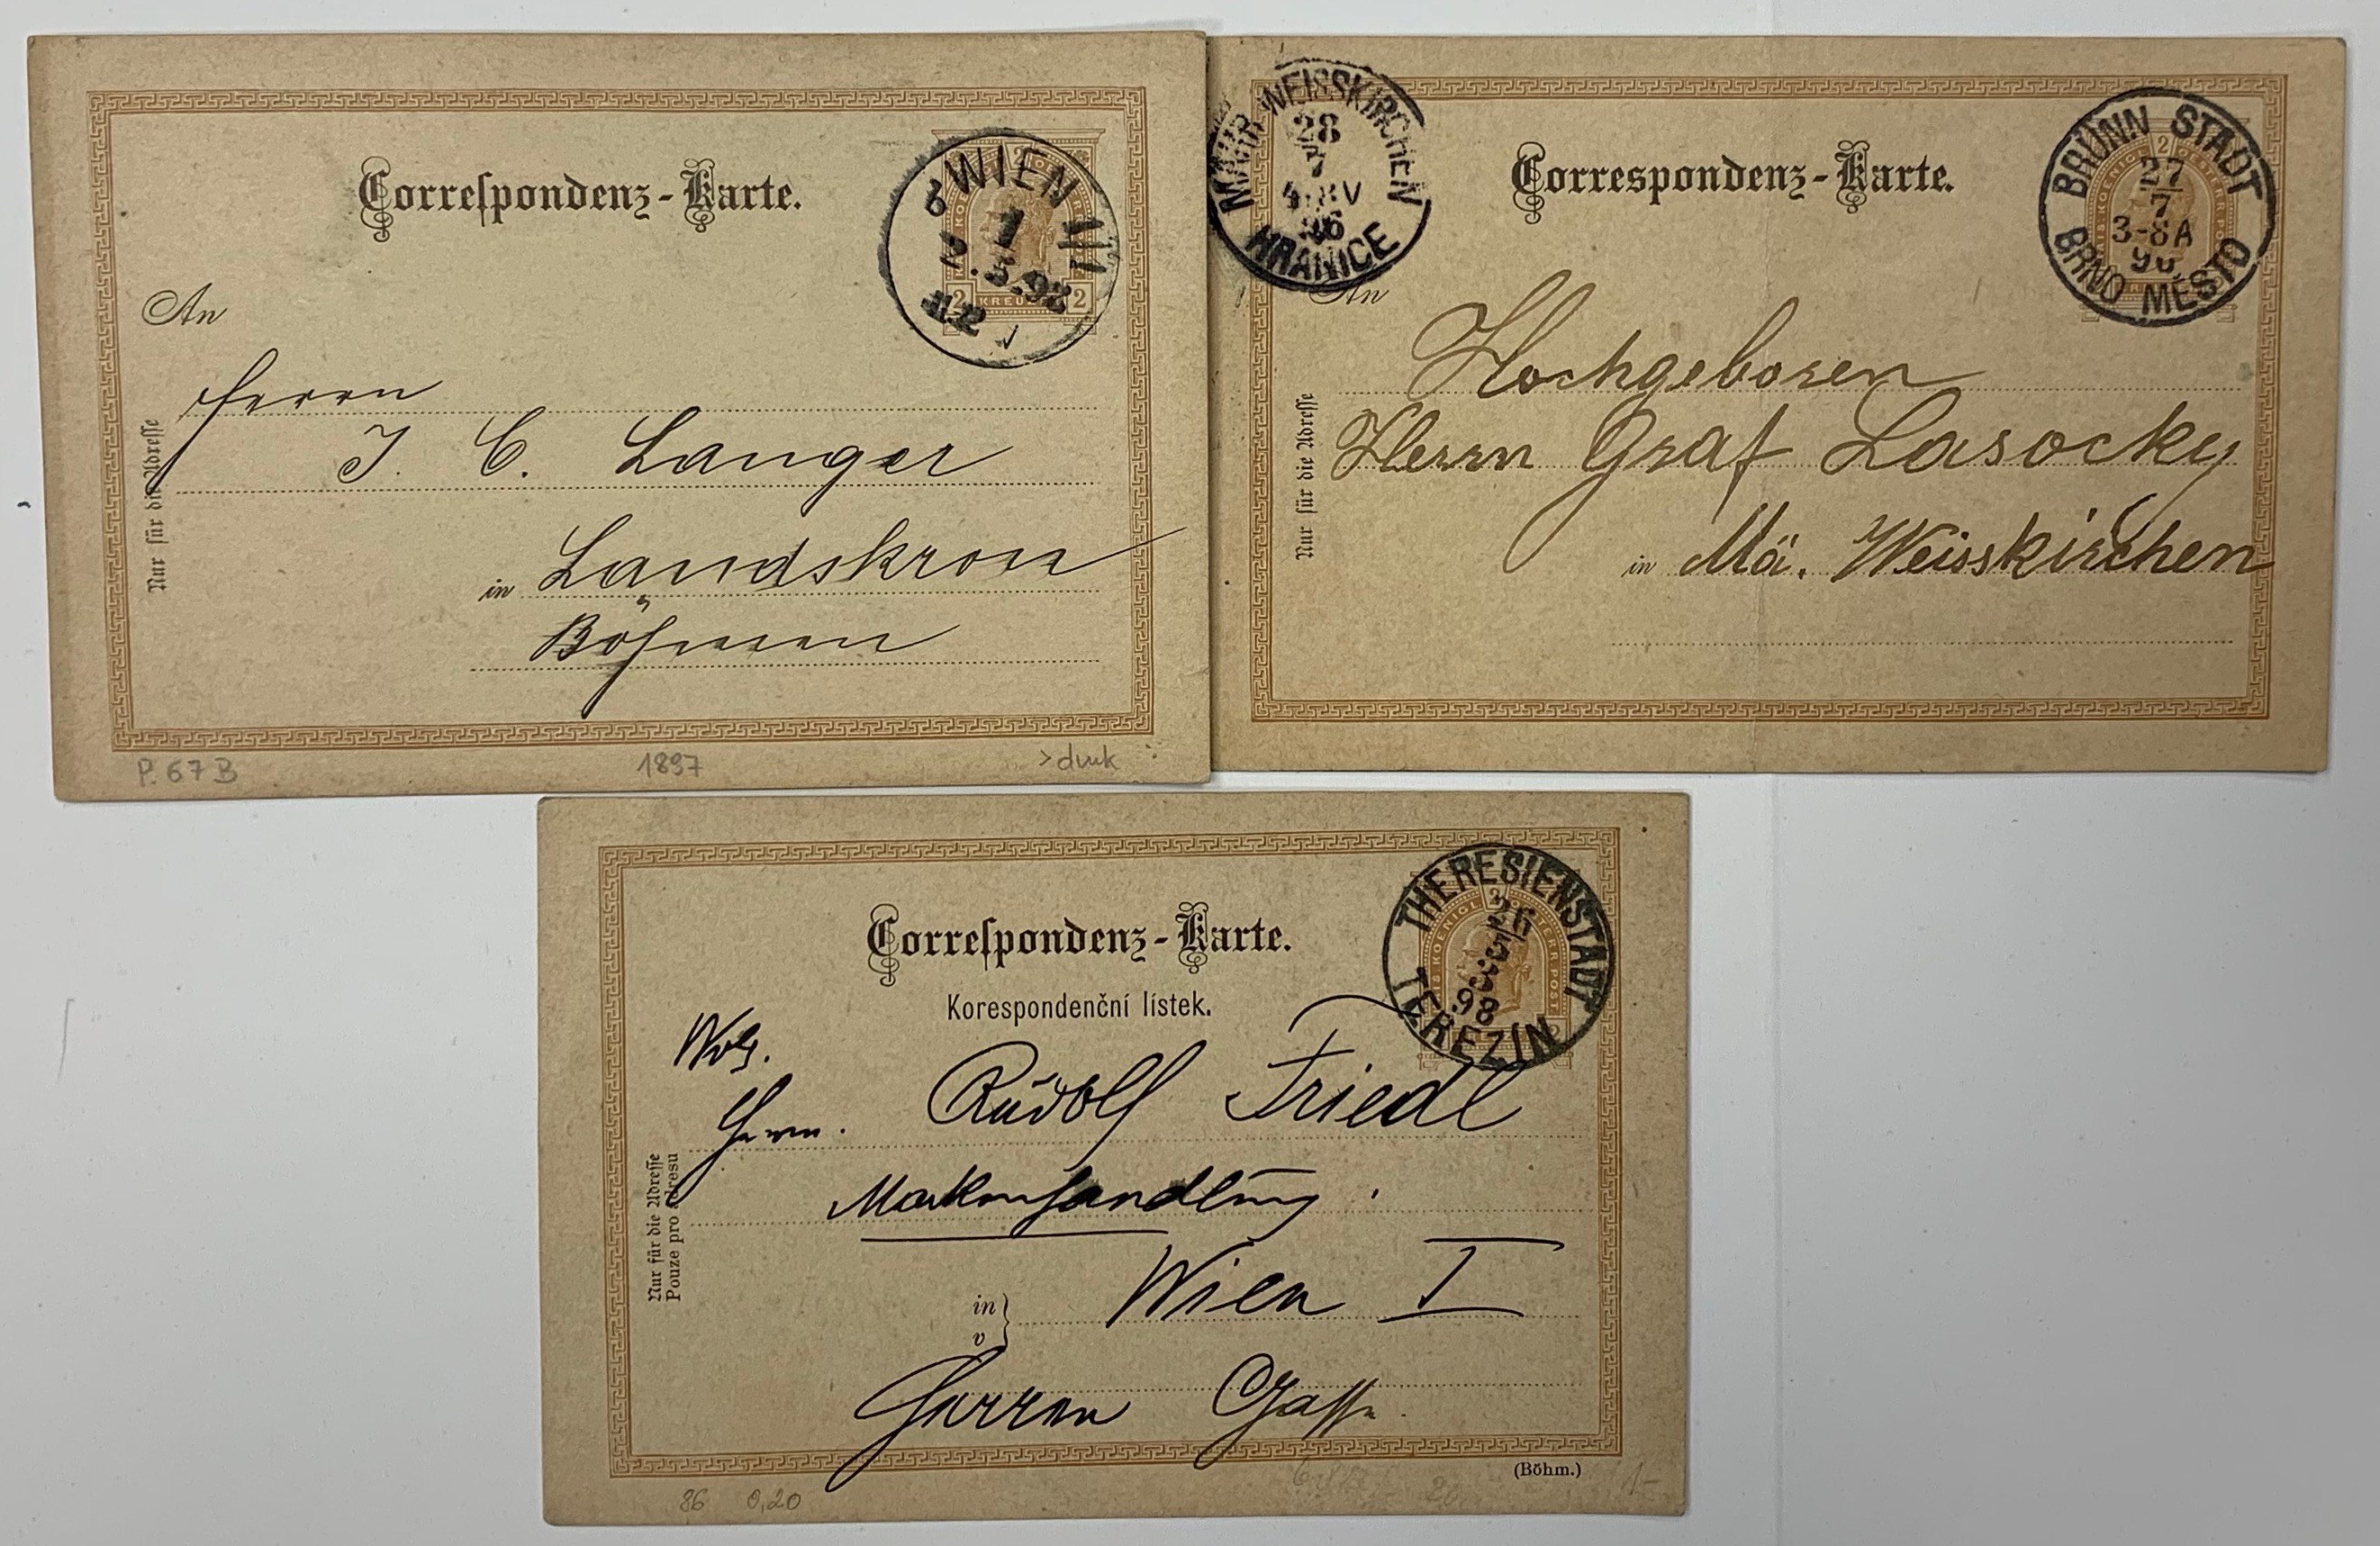 Correſpondenz-Karte.
WIEN
1
An
Herrn
J. C. Langer
in Landskron
Böhmen
Nur für die Adreſſe
2 KREUZER 2
P. 67 B
1897
>druk
MÄHR. WEISSKIRCHEN
28
7
96
HRANICE
Correspondenz-Karte.
BRÜNN STADT
27
7
3-8A
96
BRNO MĚSTO
An
Hochgeboren
Herrn Graf Lasocky
in Mä. Weisskirchen
Nur für die Adreſſe
Correſpondenz-Karte.
Korespondenční lístek.
THERESIENSTADT
98
TEREZIN
Herrn. Rudolf Friedl
Markenhandlung
in
v
Wien I
Herren Gasse
Nur für die Adreſſe
Pouze pro adresu
(Böhm.)
86 0,20